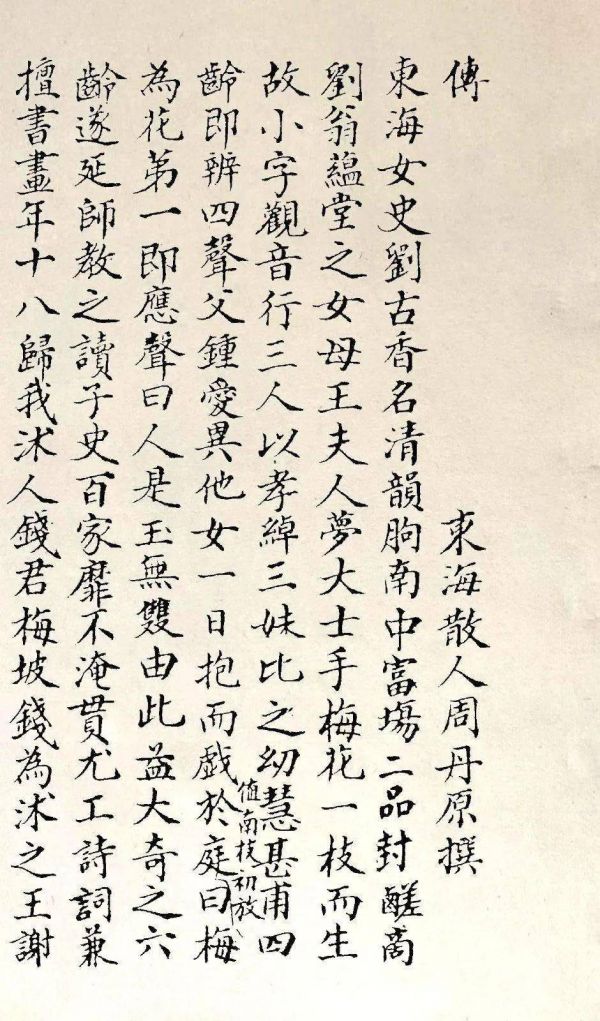 傳
東海散人周丹原撰
東海女史劉古香名清韻朐南中富場二品封鹺商
劉翁蘊堂之女母王夫人夢大士手梅花一枝而生
故小字觀音行三人以孝綽三妹比之幼慧甚甫四
齡即辨四聲父鍾愛異他女一日抱而戲於庭值南枝初放曰梅
為花第一即應聲曰人是玉無雙由此益大奇之六
齡遂延師教之讀子史百家靡不淹貫尤工詩詞兼
擅書畫年十八歸我沭人錢君梅坡錢為沭之王謝